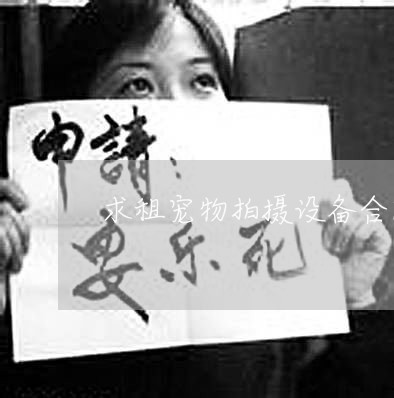 申請:
求租宠物拍摄设备合
要乐死